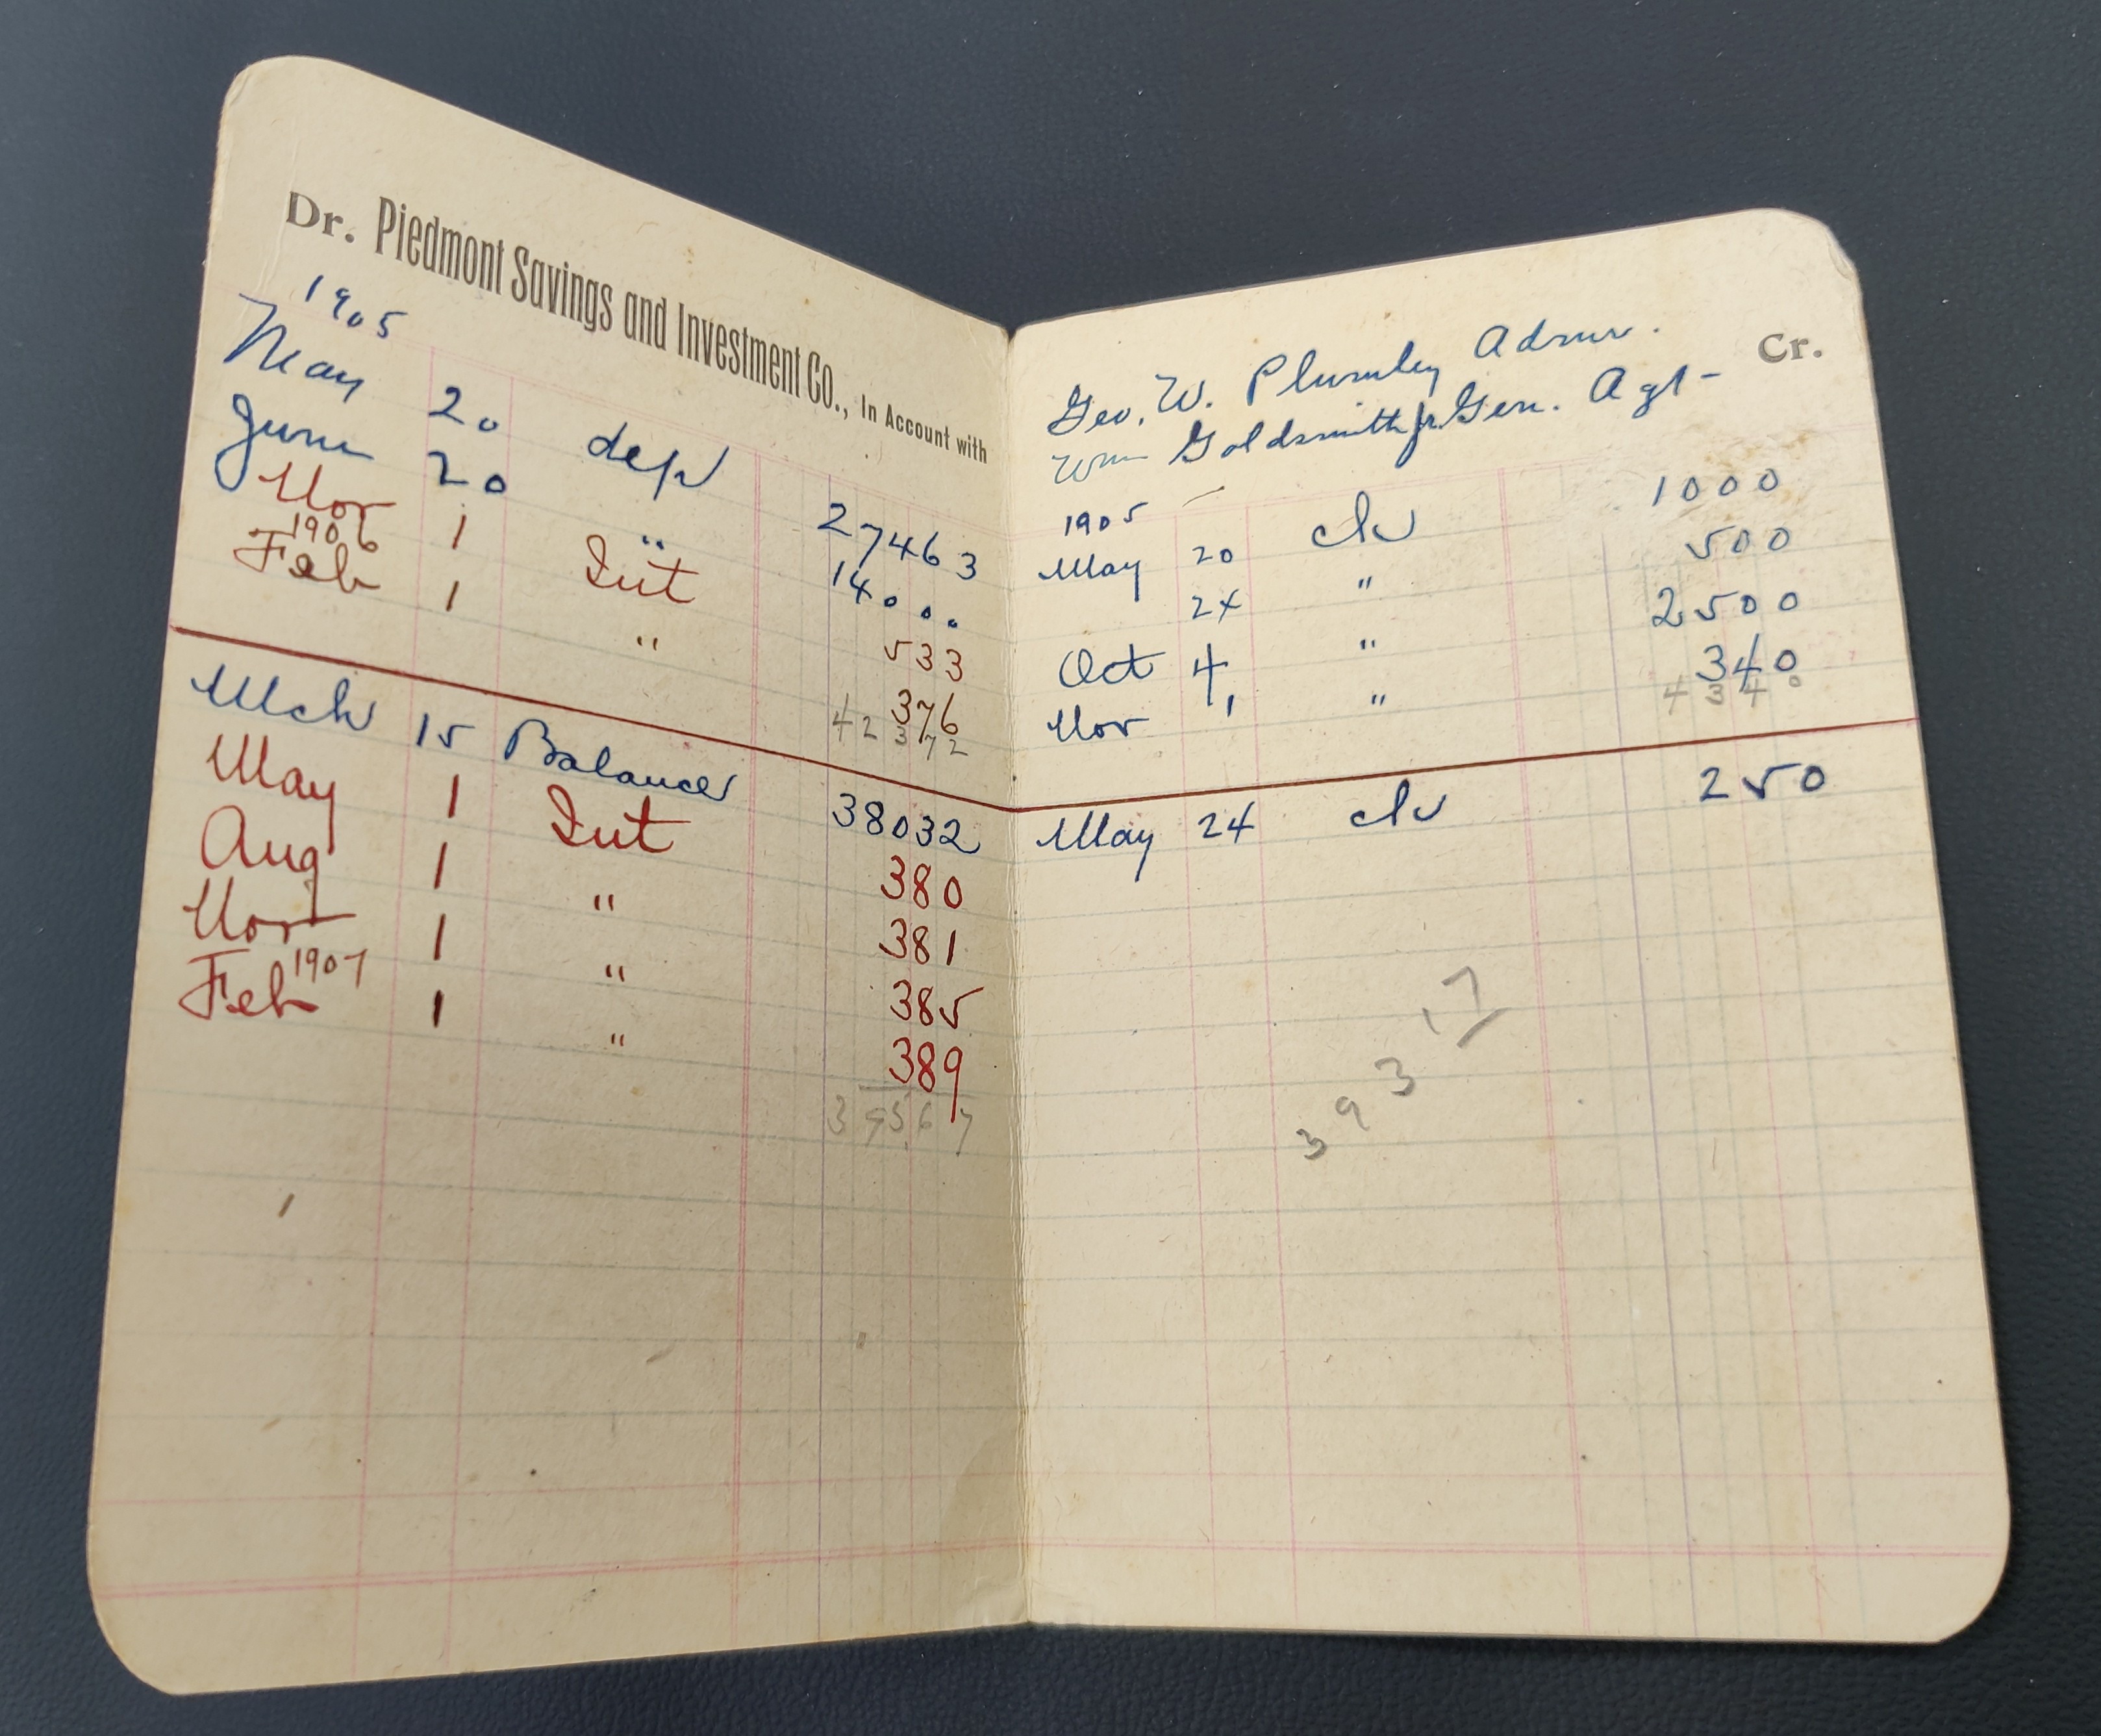 Dr. Piedmont Savings and Investment Co., In Account with
1905
May 20 dep 27463
June 20 " 14000
Nov 1 Int 533
1906
Feb 1 " 376
42372
Mch 15 Balance 38032
May 1 Int 380
Aug 1 " 381
Nov 1 " 385
1907
Feb 1 " 389
39567
Geo. W. Plumley Admr. Cr.
Wm Goldsmith Jr. Gen. Agt-
1905
May 20 ck 1000
24 " 500
Oct 4 " 2500
Nov 1 " 340
4340
May 24 ck 250
39317